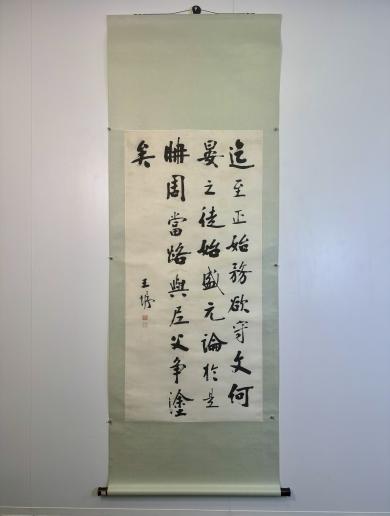 迄至正始務欲守文何
晏之徒始盛元論於是
聃周當路與尼父争塗
矣
王